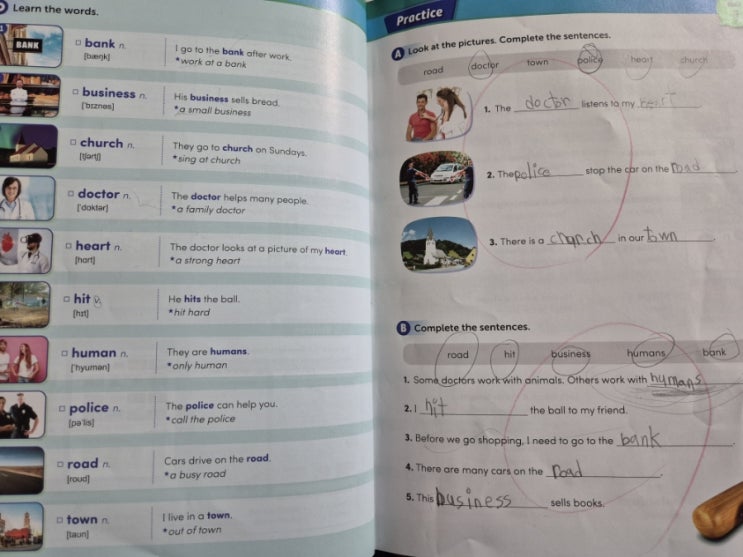 Learn the words.
1
BANK
bank n.
[bæŋk]
I go to the bank after work.
*work at a bank
business n.
[ˈbɪznəs]
His business sells bread.
*a small business
church n.
[tʃərtʃ]
They go to church on Sundays.
*sing at church
doctor n.
[ˈdɑktər]
The doctor helps many people.
*a family doctor
heart n.
[hɑrt]
The doctor looks at a picture of my heart.
*a strong heart
hit v.
[hɪt]
He hits the ball.
*hit hard
human n.
[ˈhyumən]
They are humans.
*only human
police n.
[pəˈlis]
The police can help you.
*call the police
road n.
[roʊd]
Cars drive on the road.
*a busy road
town n.
[taʊn]
I live in a town.
*out of town
Practice
A Look at the pictures. Complete the sentences.
road doctor town police heart church
1. The doctor listens to my heart.
2. The police stop the car on the road.
3. There is a church in our town.
B Complete the sentences.
road hit business humans bank
1. Some doctors work with animals. Others work with humans
2. I hit the ball to my friend.
3. Before we go shopping, I need to go to the bank.
4. There are many cars on the road.
5. This business sells books.